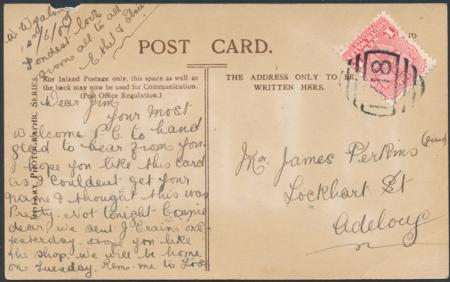 W Wyalong
1/6/09
Fondest love
from all to all
Ethel & Elsie
POST CARD.
For Inland Postage only, this space as well as
the back may now be used for Communication.
(Post Office Regulation.)
THE ADDRESS ONLY TO BE
WRITTEN HERE.
ROTARY PHOTOGRAPHIC SERIES.
Dear Jim
Your most
welcome P.C. to hand
glad to hear from you.
I hope you like this card
as I couldent get your
name I thought this was
Pretty. Not tonight
dear, we sent J Crain one
yesterday. hope you like
the shop. we will be home
on Tuesday. Rem. me to
Mr. James Perkins
Lockhart St
Adelong
81